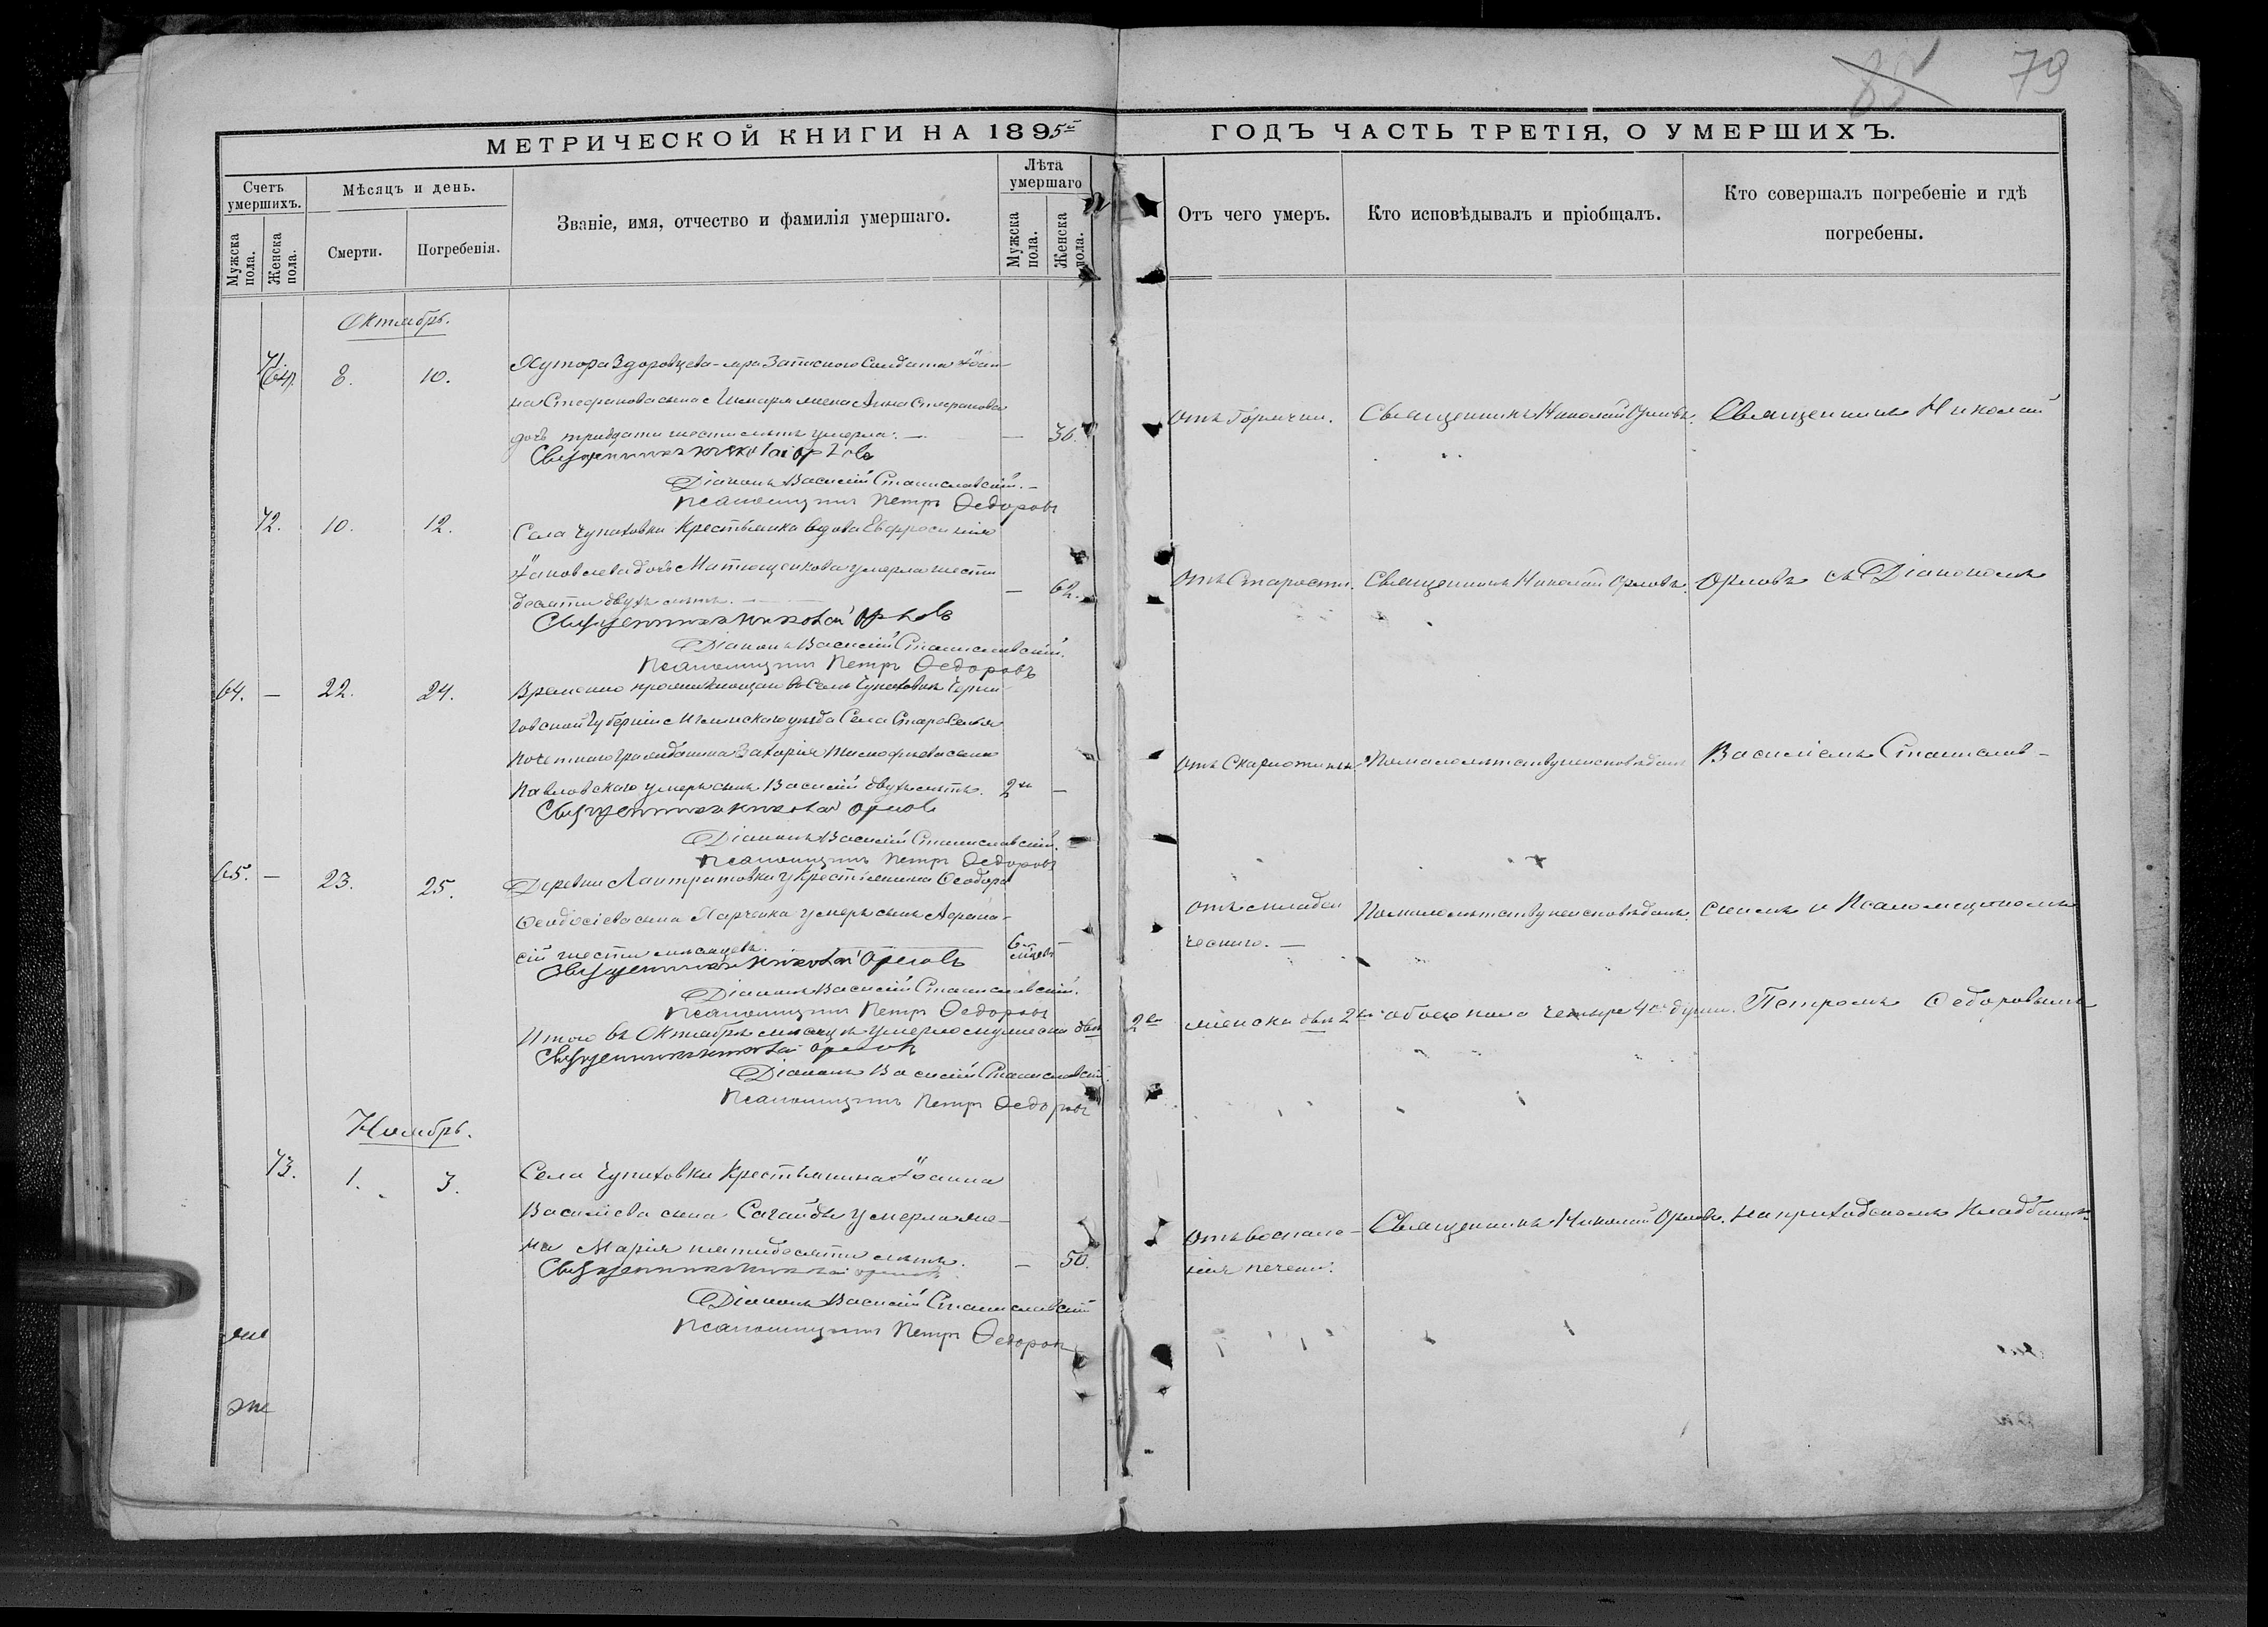 85 79
МЕТРИЧЕСКОЙ КНИГИ НА 1895 ГОДЪ ЧАСТЬ ТРЕТІЯ, О УМЕРШИХЪ.
Счетъ умершихъ.
Мужска пола.
Женска пола.
Мѣсяцъ и день.
Смерти.
Погребенія.
Званіе, имя, отчество и фамилія умершаго.
Лѣта умершаго
Мужска пола.
Женска пола.
Отъ чего умеръ.
Кто исповѣдывалъ и пріобщалъ.
Кто совершалъ погребеніе и гдѣ погребены.
Октябрь.
71 8. 10. Хутора Здоровцева жена Запаснаго Солдата Іоан-
на Стефанова сына Анна Стефанова
дочь тридцати шести лѣтъ умерла. — — 36.
Отъ Горячки. Священникъ Николай Орловъ. Священникъ Николай
Священникъ Николай Орловъ
Діаконъ Василій Станиславскій.
Псаломщикъ Петръ Ѳедоровъ
72. 10. 12. Села Чупаховки Крестьянка вдова Евфросинія
Іаковлева дочь Матющенкова умерла шести
десяти двухъ лѣтъ. — 62.
Отъ Старости. Священникъ Николай Орловъ. Орловъ съ Діакономъ
Священникъ Николай Орловъ
Діаконъ Василій Станиславскій.
Псаломщикъ Петръ Ѳедоровъ
64. — 22. 24. Временно проживающаго въ Селѣ Чупаховкѣ Черни-
говской Губерніи Мглинскаго уѣзда Села Староселья
почетнаго гражданина Захарія Тимофѣева сына
Павловскаго умеръ сынъ Василій двухъ лѣтъ. 2 —
Отъ Скарлотины. По малолѣтству неисповѣданъ Василіемъ Станислав-
Священникъ Николай Орловъ
Діаконъ Василій Станиславскій.
Псаломщикъ Петръ Ѳедоровъ
65. — 23. 25. Деревни Лантратовки у Крестьянина Ѳеодора
Ѳеодосіева сына Марченка умеръ сынъ Афана-
сій шести мѣсяцевъ. 6 мѣсяцевъ —
Отъ младен
ческаго. —
По малолѣтству неисповѣданъ. скимъ и Псаломщикомъ
Священникъ Николай Орловъ
Діаконъ Василій Станиславскій.
Псаломщикъ Петръ Ѳедоровъ
Итого въ Октябрѣ мѣсяцѣ умерло мужска два 2 женска двѣ 2 обоего пола четыре 4 души. Петромъ Ѳедоровымъ
Священникъ Николай Орловъ
Діаконъ Василій Станиславскій.
Псаломщикъ Петръ Ѳедоровъ
Ноябрь.
73. 1. 3. Села Чупаховки Крестьянина Іоанна
Василіева сына Сагайды умерла же-
на Марія пятидесяти лѣтъ. — 50.
Отъ воспале-
нія печени.
Священникъ Николай Орловъ. на приходскомъ кладбищѣ
Священникъ Николай Орловъ
Діаконъ Василій Станиславскій
Псаломщикъ Петръ Ѳедоровъ